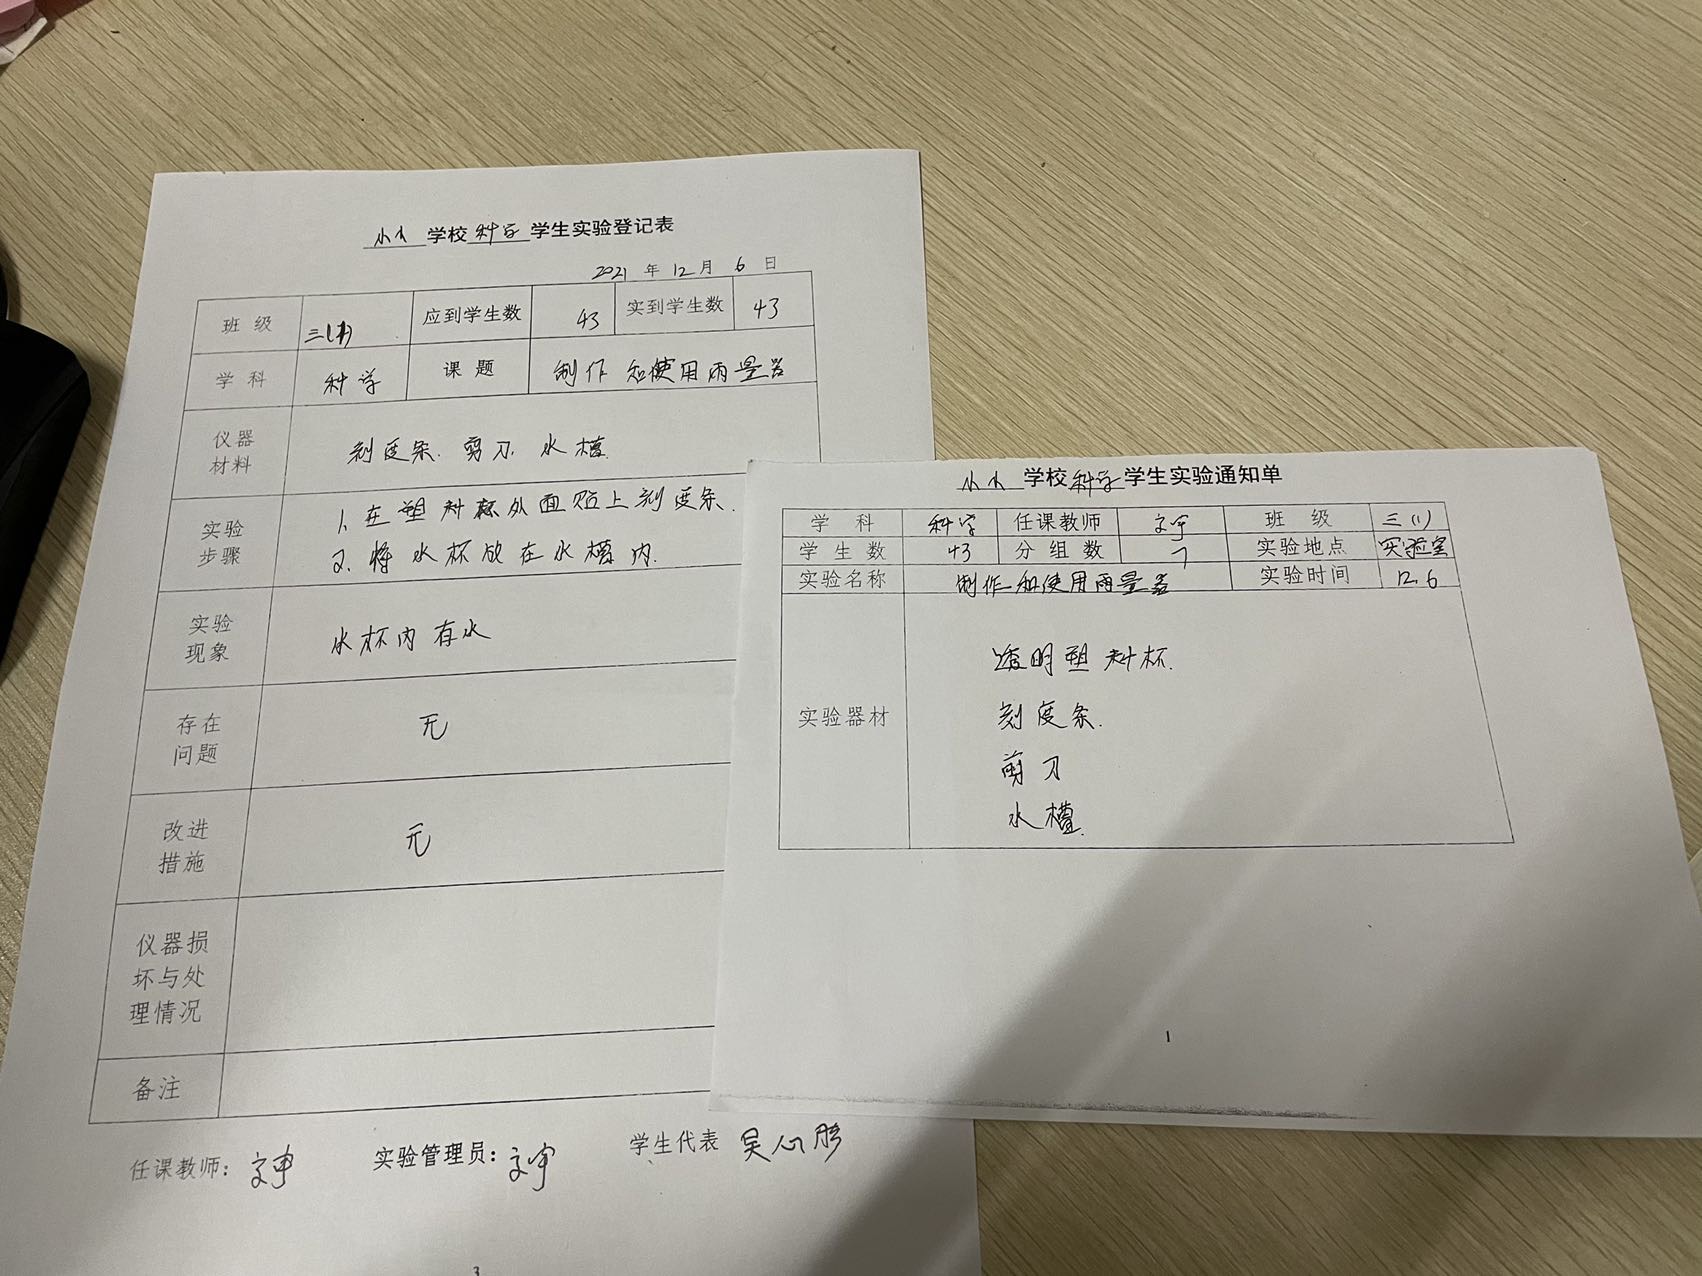 学校科学学生实验登记表
2021 年 12 月 6 日
班 级 应到学生数 43 实到学生数 43
学 科 科学 课 题 制作和使用雨量器
仪器材料 刻度条. 剪刀. 水槽.
实验步骤 1. 在塑料杯外面贴上刻度条.
2. 将水杯放在水槽内.
实验现象 水杯内存水
存在问题 无
改进措施 无
仪器损坏与处理情况
备注
任课教师: 文宇 实验管理员: 文宇 学生代表 吴心彤
3
学校科学学生实验通知单
学 科 科学 任课教师 文宇 班 级 三(1)
学 生 数 43 分 组 数 7 实验地点 实验室
实验名称 制作和使用雨量器 实验时间 12.6
实验器材
透明塑料杯.
刻度条.
剪刀
水槽.
1